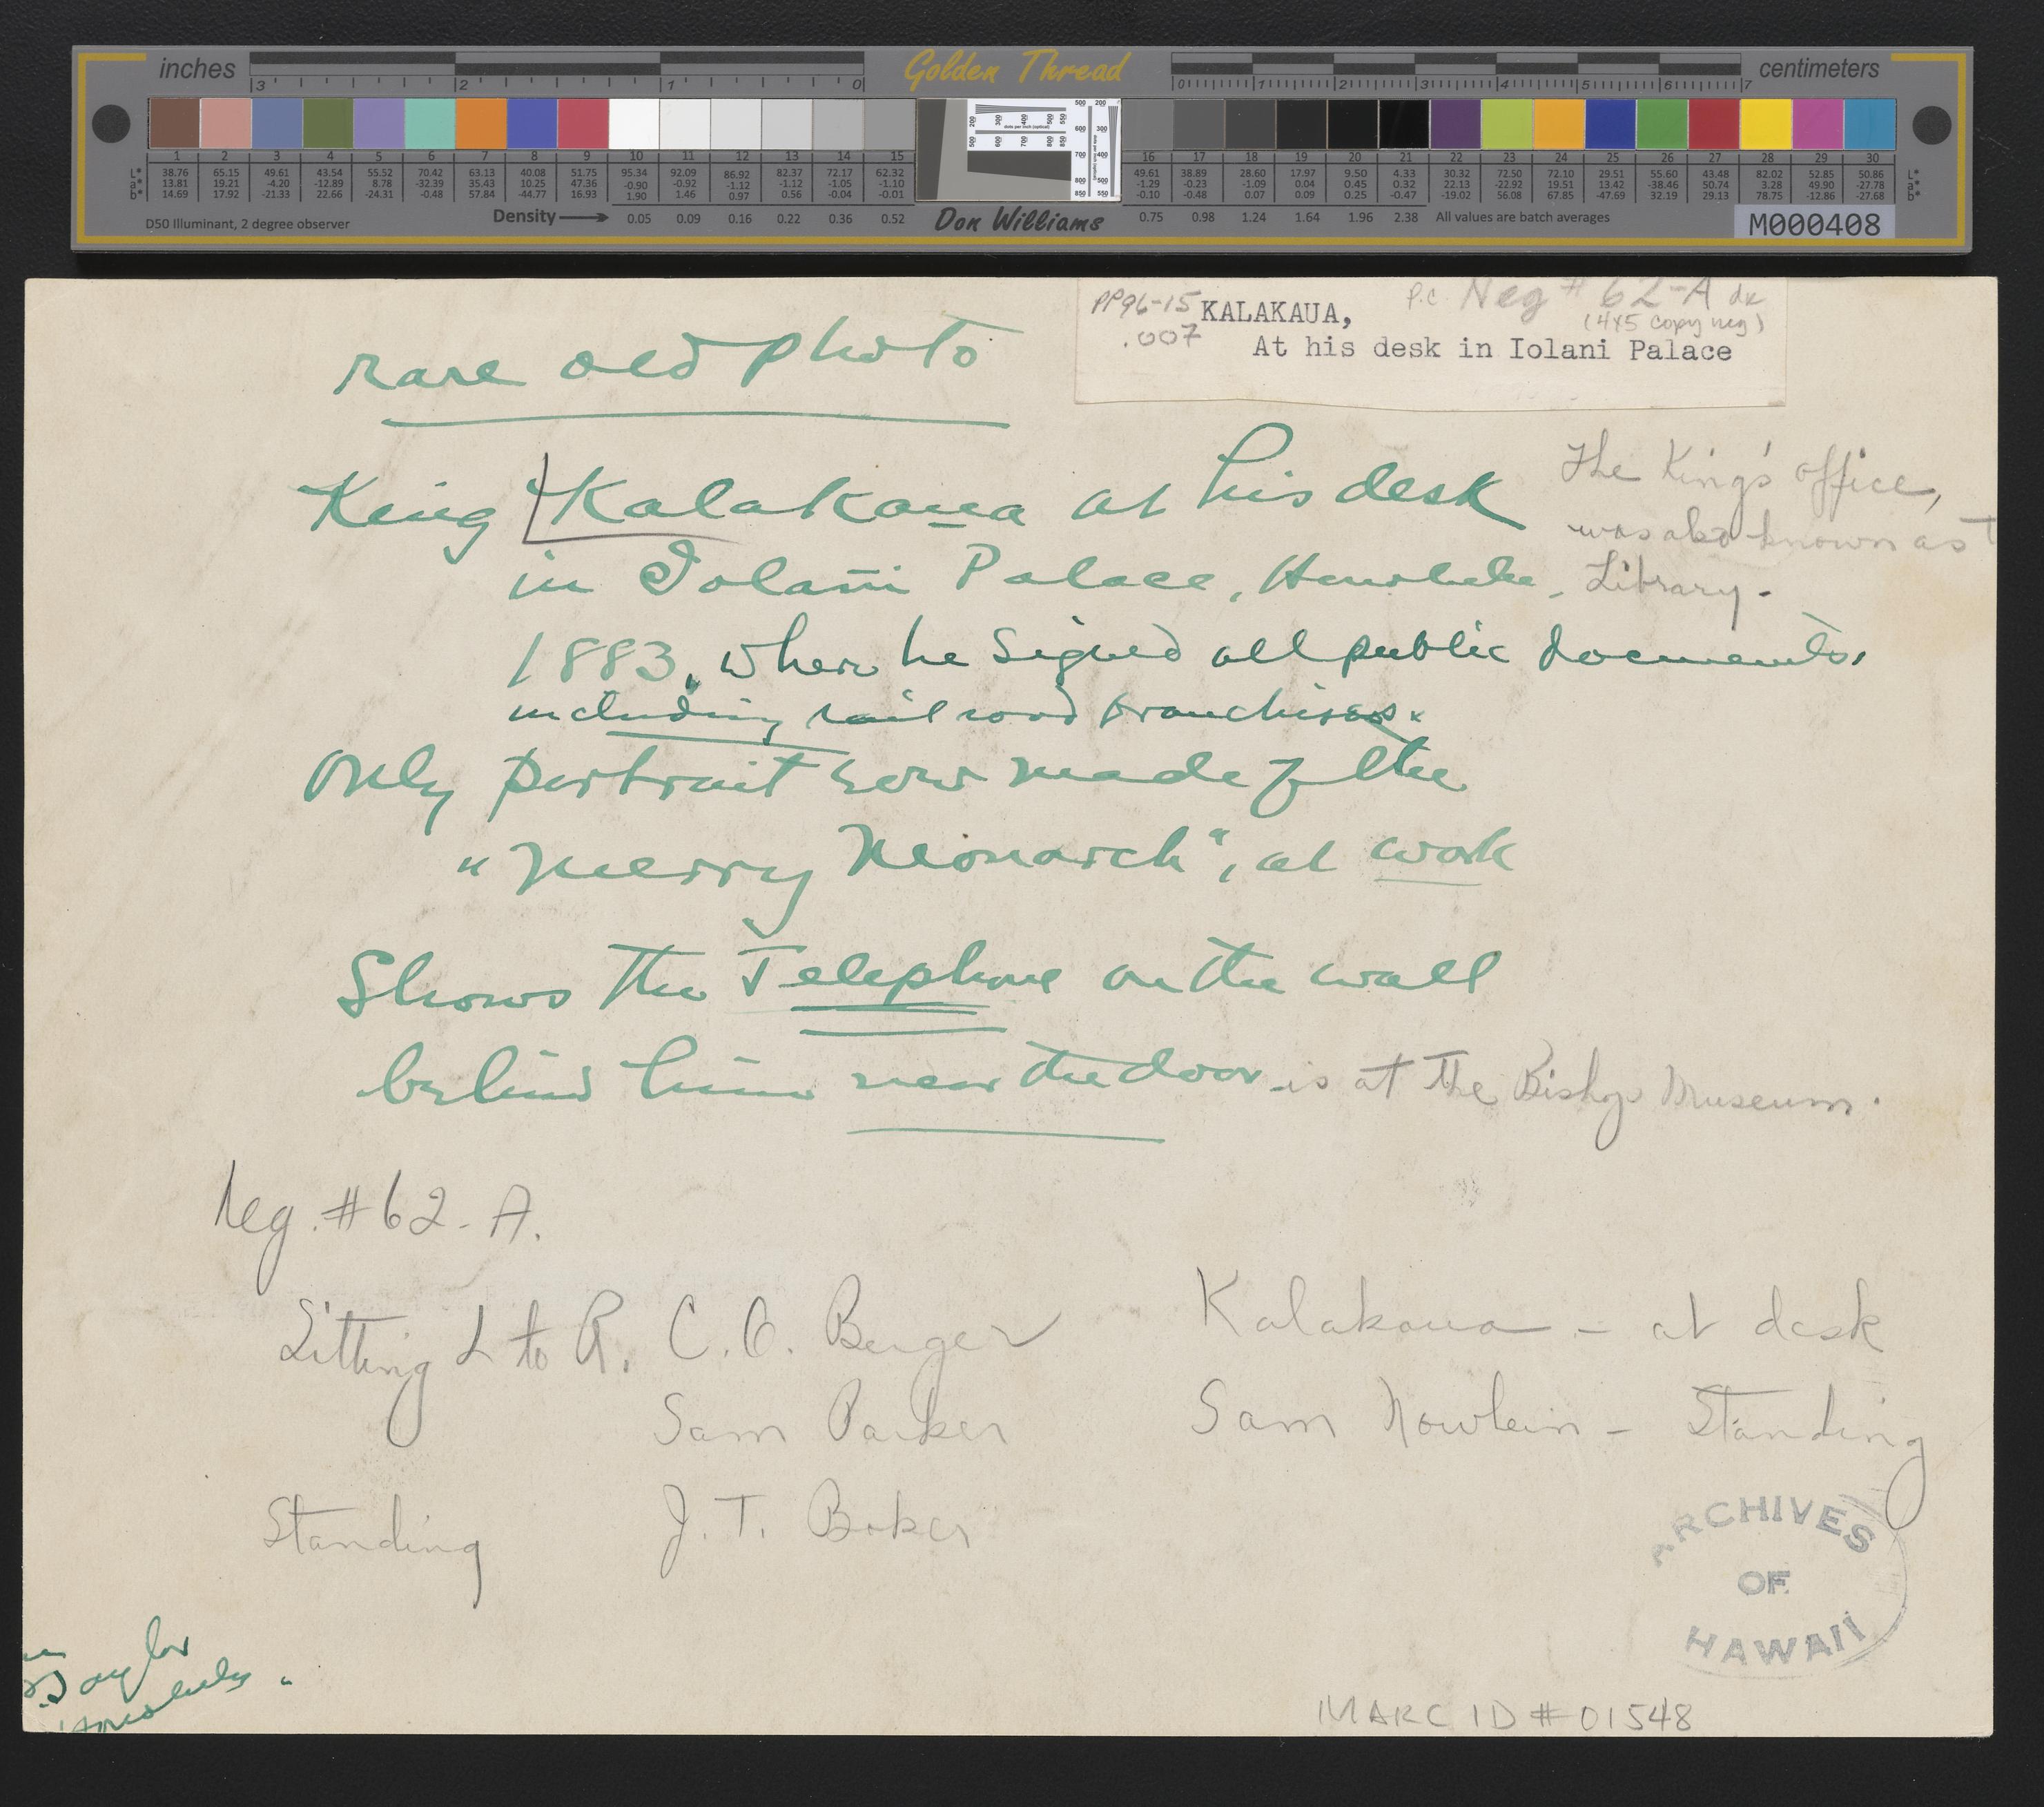 inches
3 2 1 0
Golden Thread
0 1 2 3 4 5 6 7
centimeters
1 2 3 4 5 6 7 8 9 10 11 12 13 14 15
16 17 18 19 20 21 22 23 24 25 26 27 28 29 30
L* 38.76 65.15 49.61 43.54 55.52 70.42 63.13 40.08 51.75 95.34 92.09 86.92 82.37 72.17 62.32
a* 13.81 19.21 -4.20 -12.89 8.78 -32.39 35.43 10.25 47.36 -0.90 -0.92 -1.12 -1.12 -1.05 -1.10
b* 14.69 17.92 -21.33 22.66 -24.31 -0.48 57.84 -44.77 16.93 1.90 1.46 0.97 0.56 -0.04 -0.01
49.61 38.89 28.60 17.97 9.50 4.33 30.32 72.50 72.10 29.51 55.60 43.48 82.02 52.85 50.86 L*
-1.29 -0.23 -1.09 0.04 0.45 0.32 22.13 -22.92 19.51 13.42 -38.46 50.74 3.28 49.90 -27.78 a*
-0.10 -0.48 0.07 0.09 0.25 -0.47 -19.02 56.08 67.85 -47.69 32.19 29.13 78.75 -12.86 -27.68 b*
D50 Illuminant, 2 degree observer
Density 0.05 0.09 0.16 0.22 0.36 0.52
Don Williams
0.75 0.98 1.24 1.64 1.96 2.38 All values are batch averages
M000408
PP96-15
.007
KALAKAUA,
P.C. Neg # 62-A dk
(4x5 copy neg)
At his desk in Iolani Palace
rare old photo
King Kalakaua at his desk
in Iolani Palace, Honolulu,
The King's office,
was also known as
Library.
1883, where he signed all public documents,
including railroad franchises.
Only portrait ever made of the
"Merry Monarch", at work
Shows the Telephone on the wall
behind him near the door is at the Bishop Museum.
Neg. #62-A.
Sitting L to R. C. O. Berger
Sam Parker
Standing J. T. Baker
Kalakaua - at desk
Sam Nowlein - Standing
ARCHIVES
OF
HAWAII
Taylor
Honolulu.
MARC ID # 01548